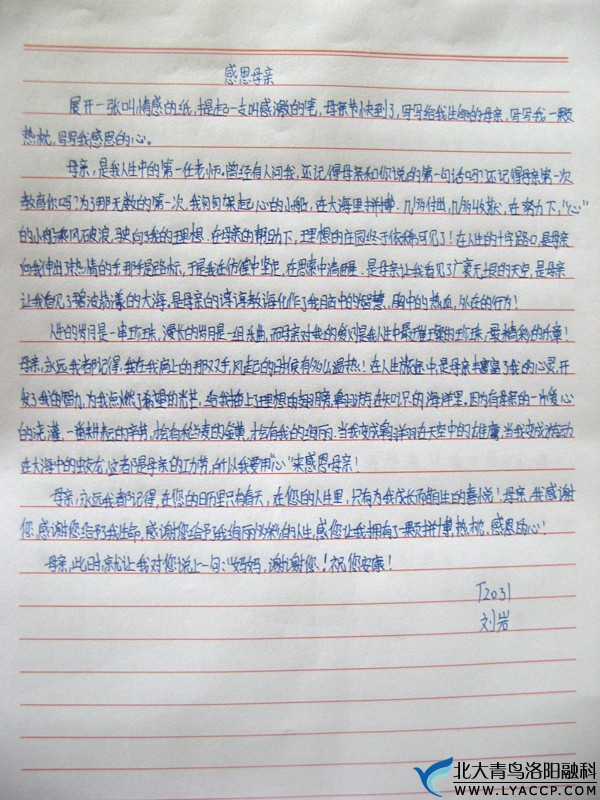 感恩母亲
展开一张叫情感的纸,提起一支叫感激的笔,母亲节快到了,写写给我生命的母亲,写写我一颗
热忱,写写我感恩的心。
母亲,是我人生中的第一任老师。曾经有人问我,还记得母亲和你说的第一句话吗?还记得母亲第一次
教育你吗?为了那无数的第一次,我匆匆架起心的小船,在大海里拼搏,几份付出,几份收获,在努力下,“心”
的小船乘风破浪,驶向了我的理想。在母亲的帮助下,理想的庄园终于依稀可见了!在人生的十字路口,是母亲
向我伸出对热情的手那手是路标,于是我在仿徨中坚定,在思索中清醒。是母亲让我看见了广袤无垠的天空,是母亲
让我看见了碧波荡漾的大海,是母亲的谆谆教诲化作了我脑中的智慧,胸中的热血,外在的行为!
人生的岁月是一串珍珠,漫长的岁月是一组乐曲,而母亲对我的爱则是我人生中最璀璨的珍珠,最精彩的乐章!
母亲,永远我都记得,我在我肩上的那双手,风起的时候有多么温热!在人生旅途中,是母亲丰富了我的心灵,开
发了我的智力,为我点燃了希望的光芒,给我插上了理想的翅膀,翱翔在知识的海洋里。因为有母亲的一片爱心
的浇灌,一番耕耘的辛劳,才会有秋麦的金黄,才会有我的绚丽。当我变成翱翔在天空中的雄鹰,当我变成游动
在大海中的蛟龙,这都是母亲的功劳,所以我要用“心”来感恩母亲!
母亲,永远我都记得,在您的日历里只有春天,在您的人生里,只有为我成长而萌生的喜悦!母亲,我感谢
您,感谢您给予我生命,感谢您给予我绚丽缤纷的人生,感您让我拥有了一颗拼搏,热忱,感恩的心!
母亲,此时就让我对您说上一句:“妈妈,谢谢您!祝您安康!
T2031
刘岩
北大青鸟洛阳融科
WWW.LYACCP.COM